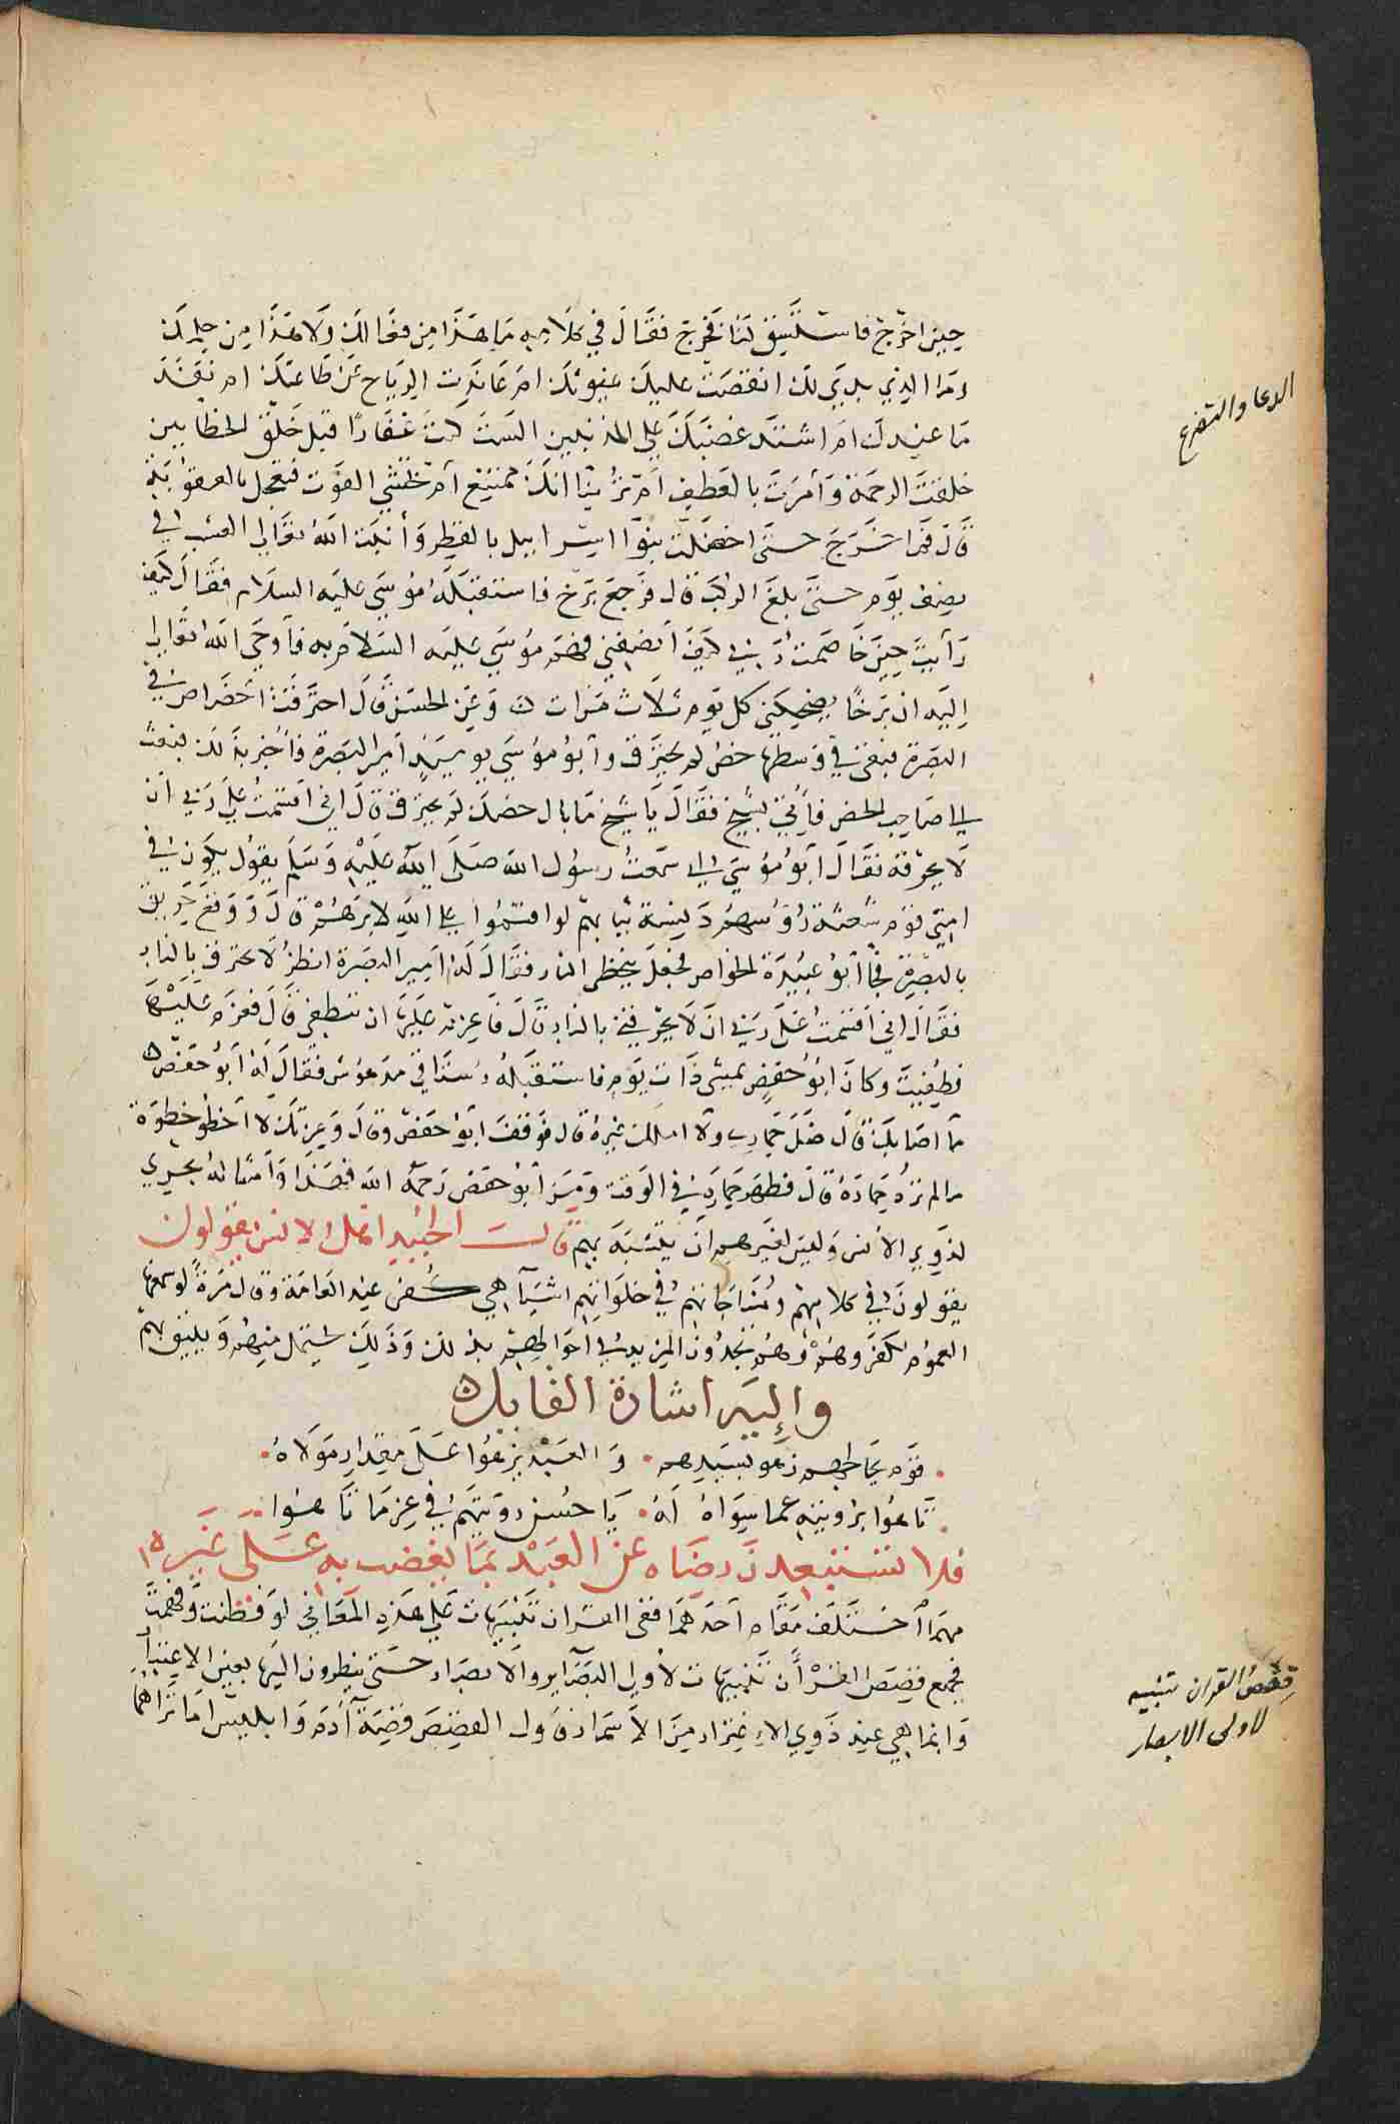 حين اخرج فاستسق لنا فخرج فقال في كلامه ما هذا من فعالك ولا هذا من حلمك
وما الذي بدا لك انقصت عليك عيونك ام عاندت الرياح عن طاعتك ام نفذ
ما عندك ام اشتد غضبك على المذنبين الست كنت غفارا قبل خلق الخطايين
خلقت الرحمة وأمرت بالعطف ام ترينا انك ممتنع ام تخشى الفوت فتعجل بالعقوبة
قال فما خرج حتى اخضلت بنوا اسرابيل بالقطر وأنبت الله تعالى العشب في
نصف يوم حتى بلغ الركب قال فرجع برخ فاستقبله موسى عليه السلام فقال كيف
رأيت حين خاصمت ربي كيف انصفني فهم موسى عليه السلام به فأوحى الله تعالى
إليه ان برخا يضحكني كل يوم ثلاث مرات وعن الحسن قال احترقت اخصاص في
البصرة فبقى في وسطها خص لم يحترق وأبو موسى يوميذ امير البصرة فأخبر بذلك فبعث
الى صاحب الخص فأتي بشيخ فقال يا شيخ ما بال خصك لم يحترق قال اني اقسمت على ربي ان
لا يحرقه فقال ابو موسى اني سمعت رسول الله صلى الله عليه وسلم يقول يكون في
امتي قوم شعثة رؤسهم دنسة ثيابهم لو اقسموا على الله لابرهم قال ووقع حريق
بالبصرة فجا أبو عبيدة الخواص فجعل يتخطى النار فقال له امير البصرة انظر لا تحترق بالنار
فقال اني اقسمت على ربي ان لا يحرقني بالنار قال فاعزم عليها ان تنطفي قال فعزم عليها
فطفيت وكان ابو حفص يمشي ذات يوم فاستقبله رستاقي مدهوش فقال له ابو حفص
ما اصابك قال ضل حماري ولا املك غيره قال فوقف ابو حفص وقال وعزتك لا اخطو خطوة
ما لم ترد حماره قال فظهر حماره في الوقت ومر أبو حفص رحمه الله فهذا وأمثاله يجري
لذوي الأنس وليس لغيرهم ان يتشبه بهم قال الجنيد اهل الانس يقولون
يقولون في كلامهم ومناجاتهم في خلواتهم اشيآ هي كفر عند العامة وقال مرة لو سمعها
العموم لكفروهم وهم يجدون المزيد في احوالهم بذلك وذلك يحتمل منهم ويليق بهم
وإليه اشارة القايل
قوم يخالجهم زهو بسيدهم والعبد يزهوا على مقدار مولاه
تاهوا برويته عما سواه له يا حسن رويتهم في عز ما تاهوا
فلا تستبعدن رضاه عن العبد بما يغضب به على غيره
مهما اختلف مقامهما ففي القران تنبيهات على هذه المعاني لو فطنت وفهمت
فجميع قصص القرآن تنبيهات لأولي البصاير والابصار حتى ينظرون اليها بعين الاعتبار
وانما هي عند ذوي الاغترار من الاسمار فاول القصص قصة آدم وابليس اما تراهما
الدعا والتضرع
قصص القران تنبيه
لاولى الابصار